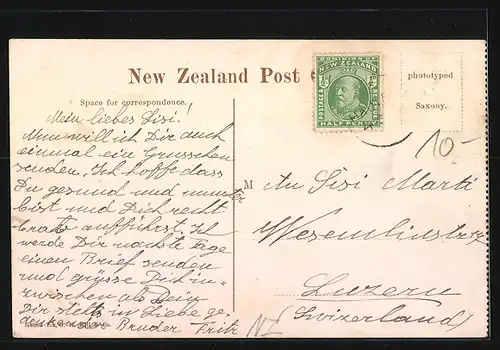 New Zealand Post
phototyped
Saxony.
Space for correspondence.
DOMINION OF
NEW ZEALAND
POSTAGE
REVENUE
HALF PENNY
10-
Mein liebes Sisi!
Nun will ich Dir auch
einmal ein Grusschen
senden. Ich hoffe dass
Du gesund und munter
bist und Dich recht
brav aufführst. Ich
werde Dir nächste Tage
einen Brief senden
und grüsse Dich in-
zwischen als Dein
Dir stets in Liebe ge-
denkender Bruder Fritz
M
An Sisi Marti
Luzern
(Switzerland)
NZ